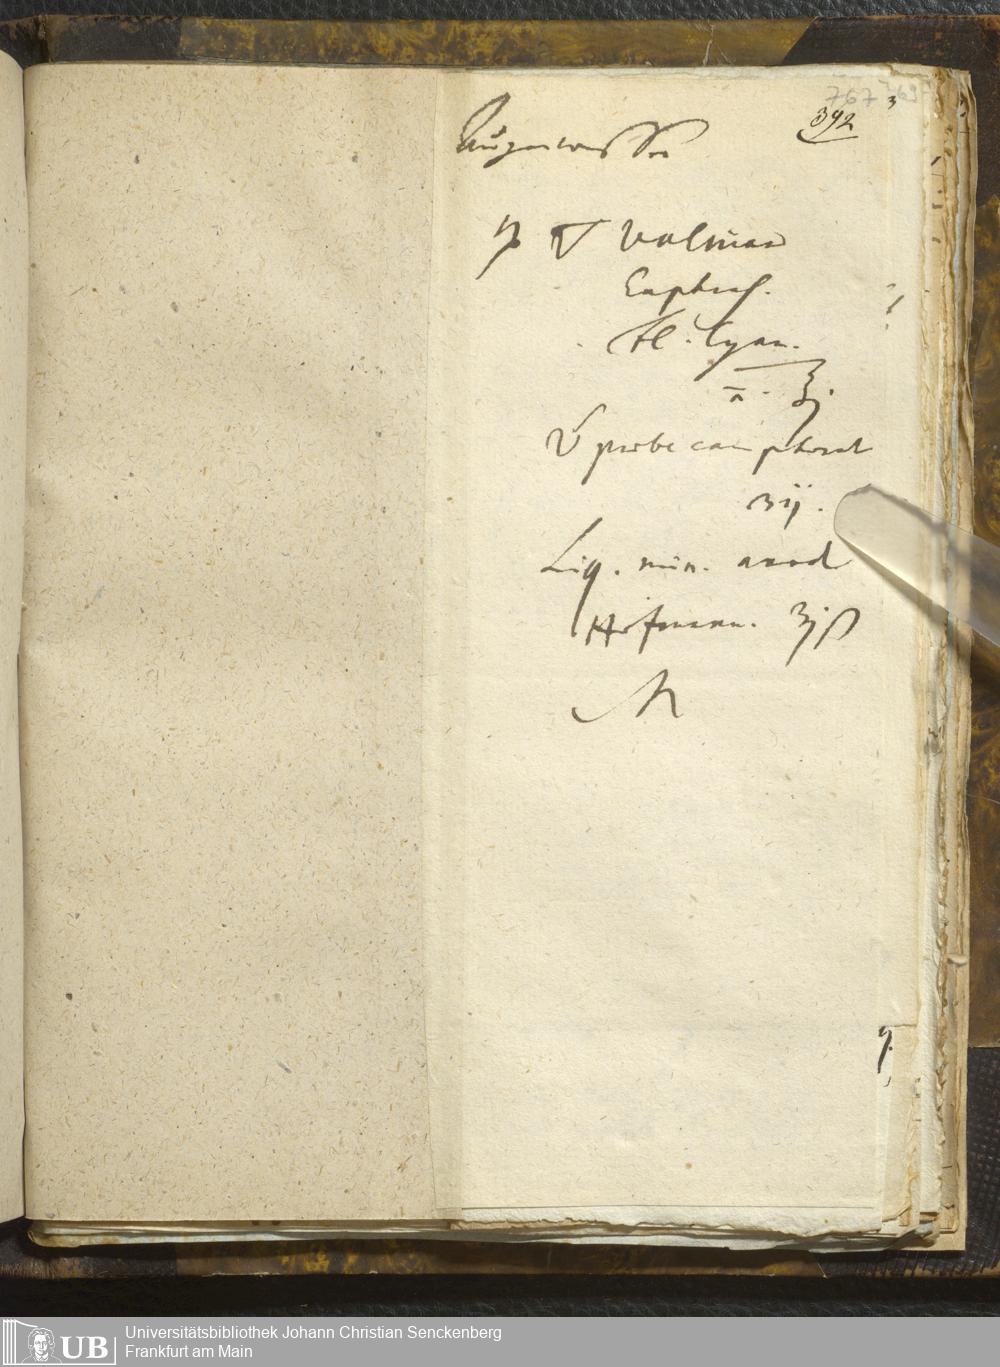 767
392
3
Augenwasser
℞ 🜄 Valerian
Euphras.
fl. Cyan.
ā. ℥j.
probe camphorat
ʒij.
Liq. min. anod
Hofmann. ʒjß
M
Universitätsbibliothek Johann Christian Senckenberg
Frankfurt am Main
UB